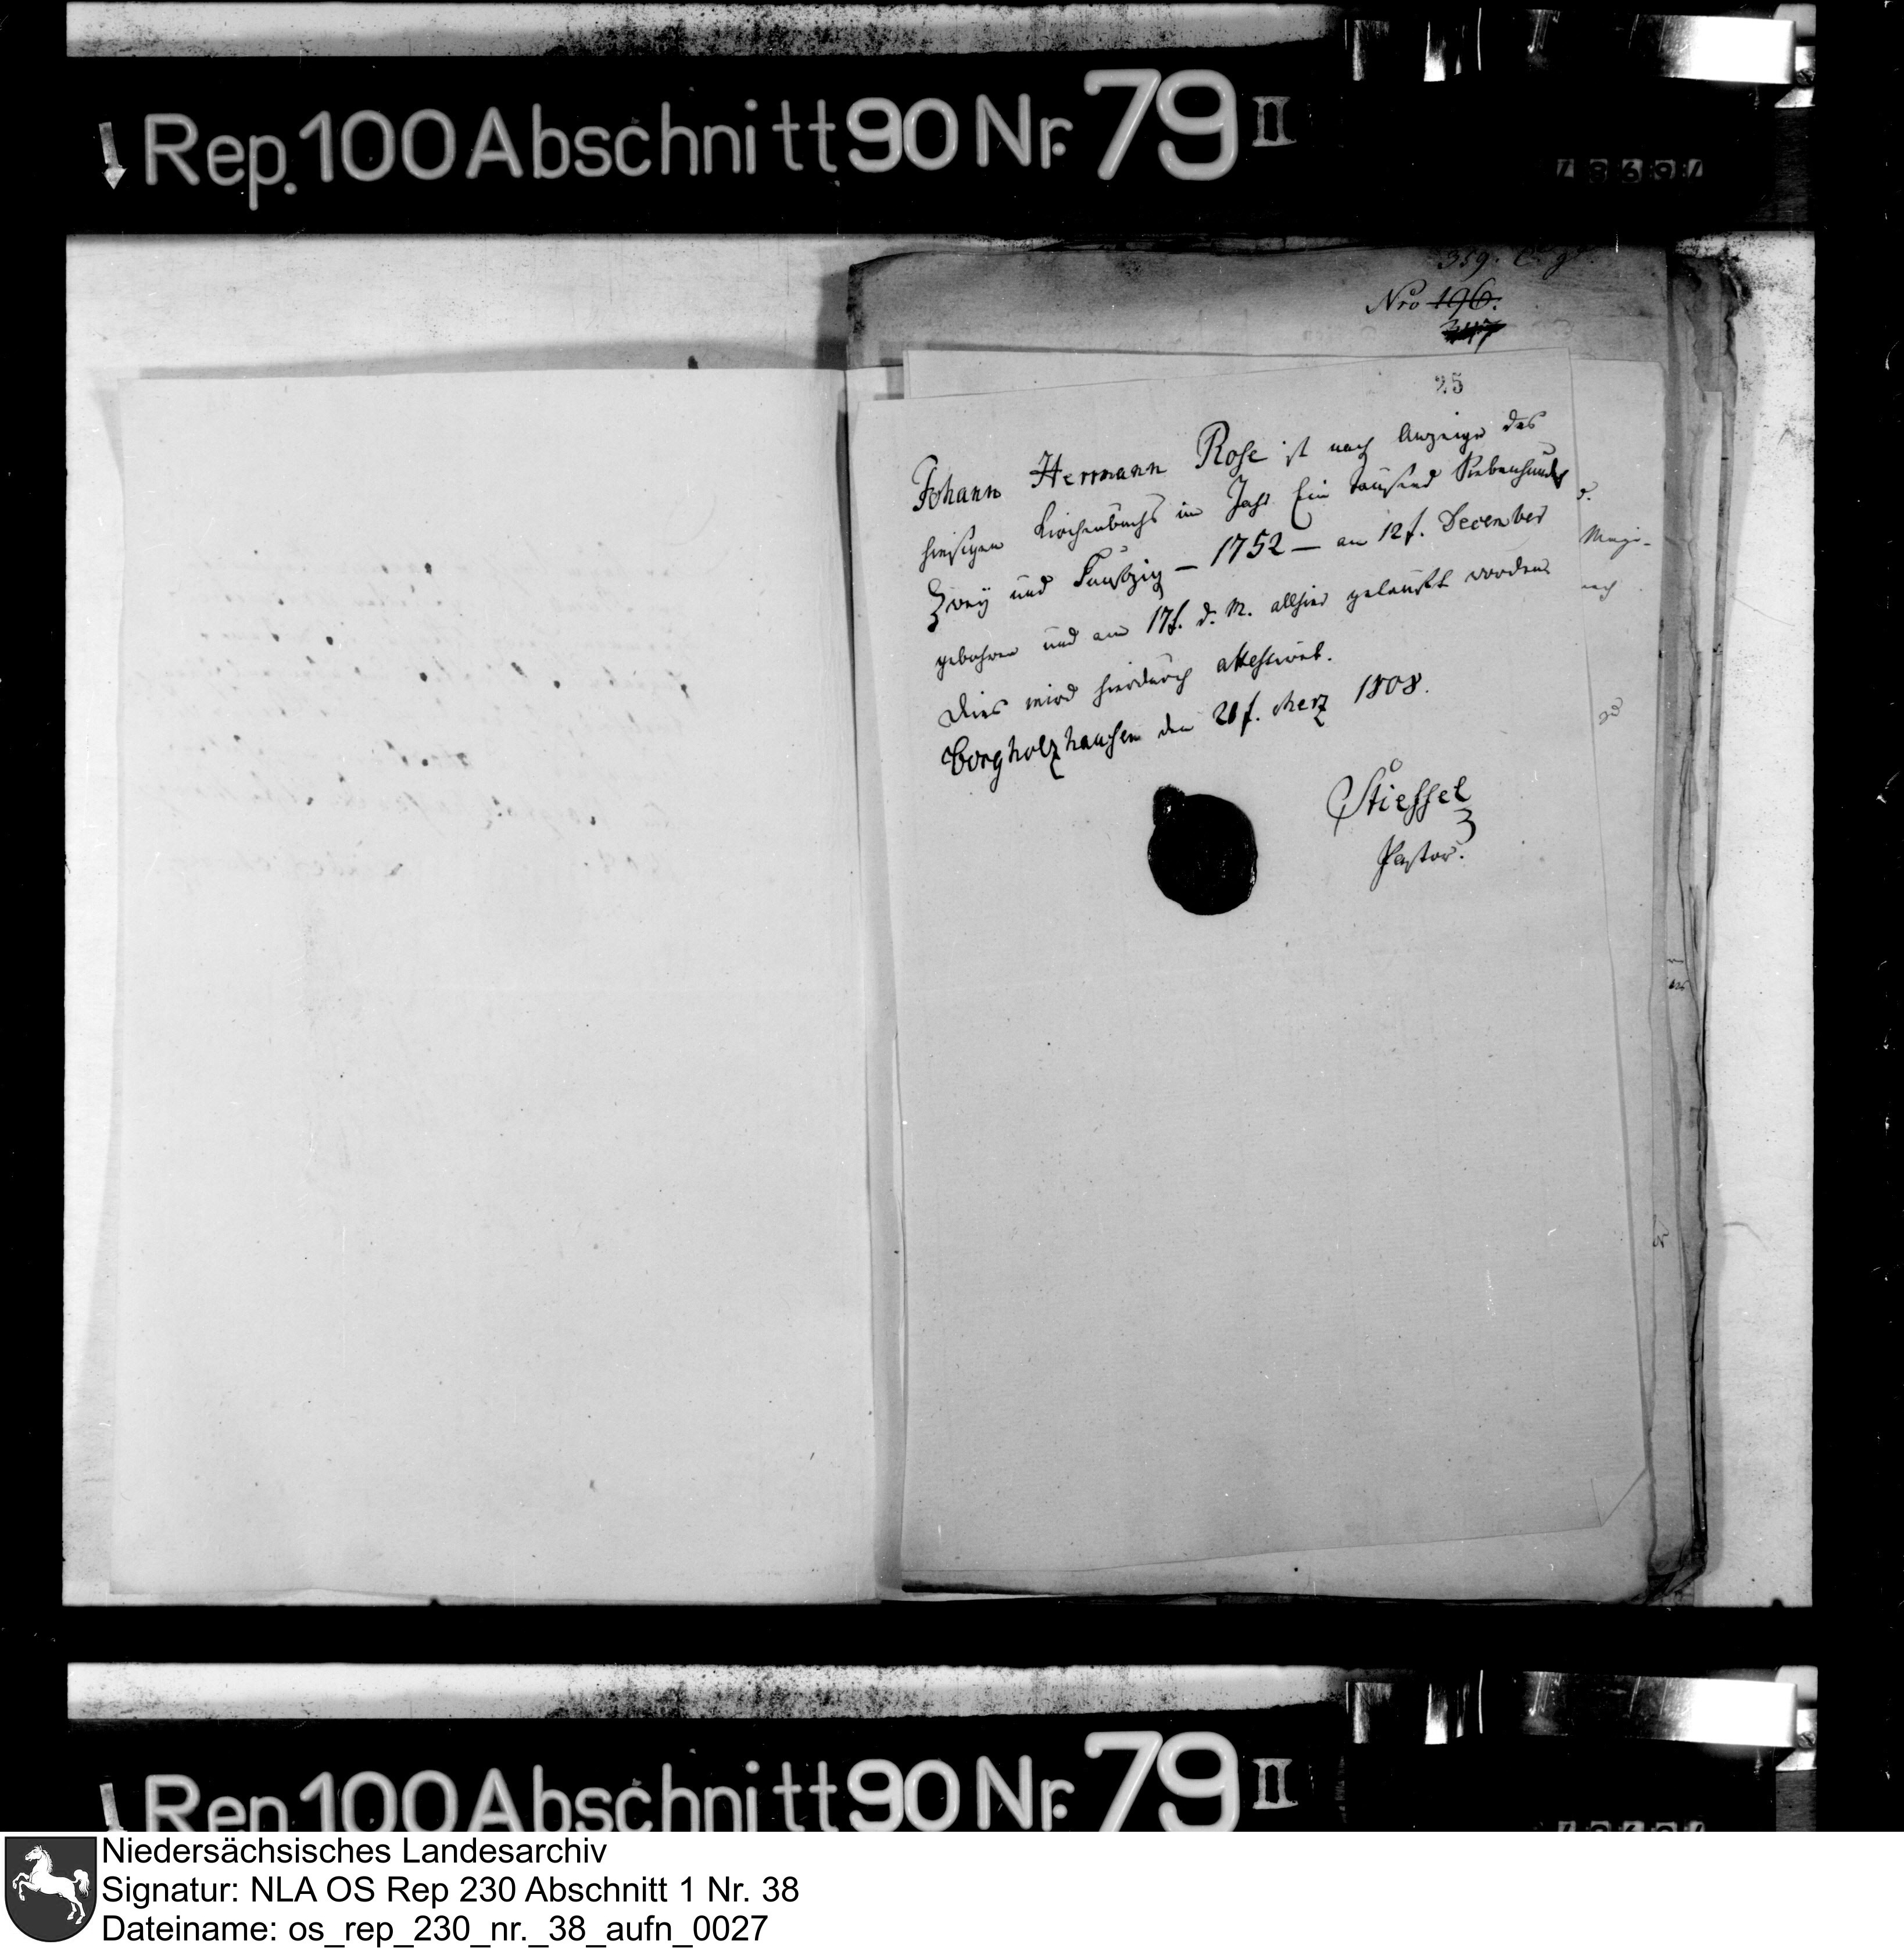 Rep. 100 Abschnitt 90 Nr. 79 II
359.
Nro 196.
25
Johann Hermann Rose ist nach Anzeige des
hiesigen Kirchenbuchs im Jahr Ein tausend Siebenhundert
Zwey und Funfzig – 1752 – am 12t. December
gebohren und am 17t. d. M. allhier getauft worden.
Dies wird hierdurch attestirt.
Borgholzhausen den 21t. Merz 1808.
Stiessel
Pastor.
nach
Rep. 100 Abschnitt 90 Nr. 79 II
Niedersächsisches Landesarchiv
Signatur: NLA OS Rep 230 Abschnitt 1 Nr. 38
Dateiname: os_rep_230_nr._38_aufn_0027